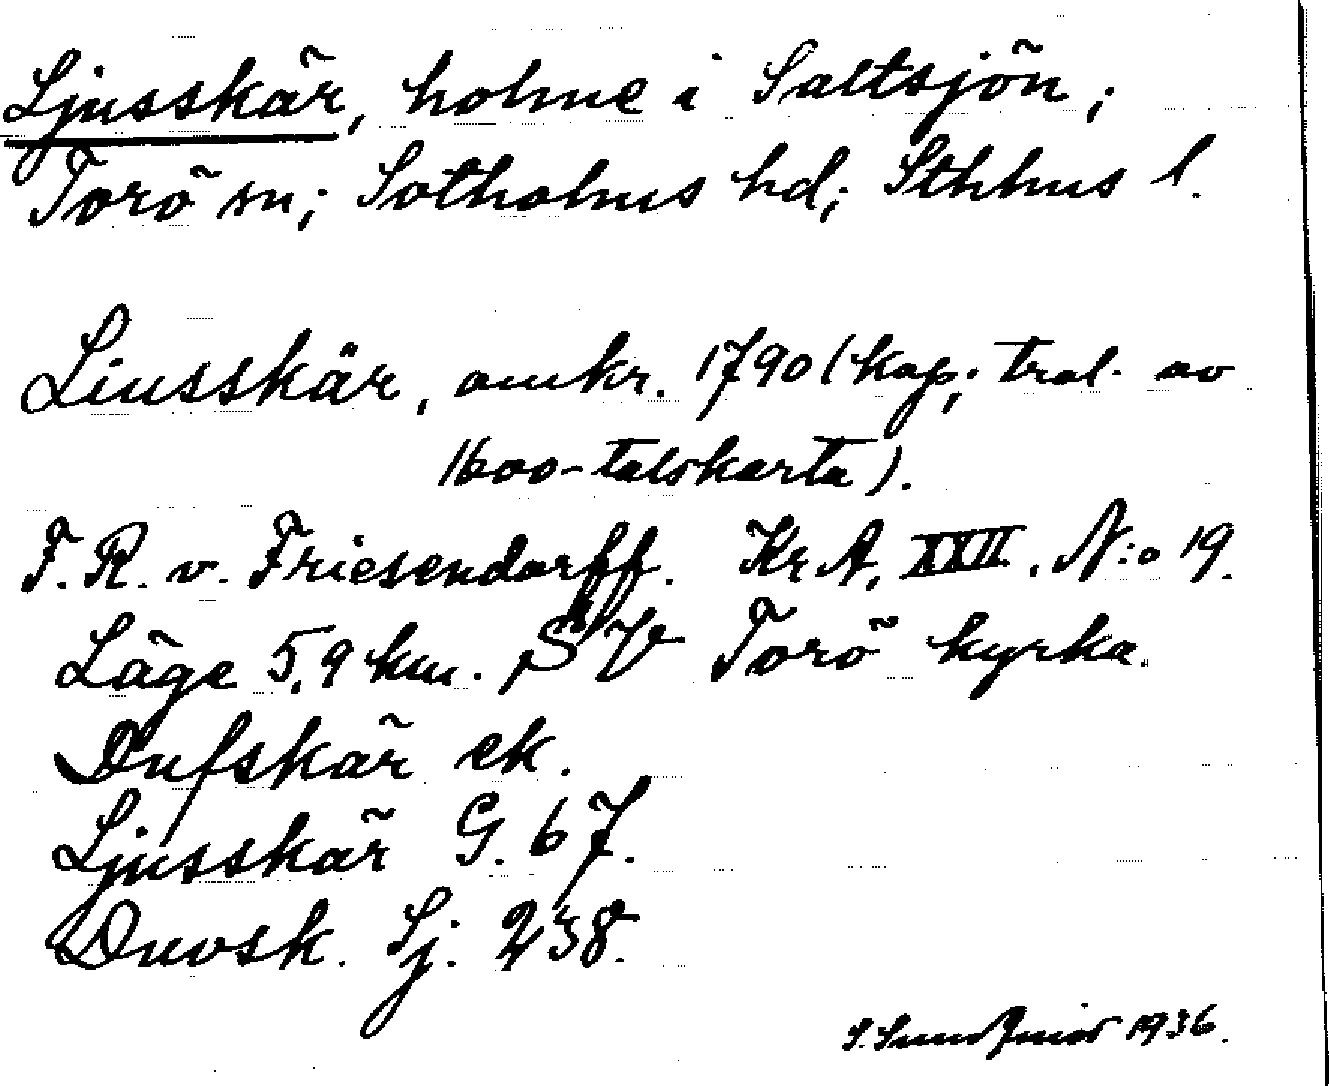 Ljusskär, holme i Saltsjön;
Torö sn; Sotholms hd; Sthlms l.
Liusskär, omkr. 1790 (kop; trol. av
1600-talskarta).
F. R. v. Friesendorff. Kr. A. XXII. N:o 19.
Läge 5,9 km. SV Torö kyrka.
Dufskär ek.
Ljusskär G. 67.
Duvsk. Sj. 238.
1936.